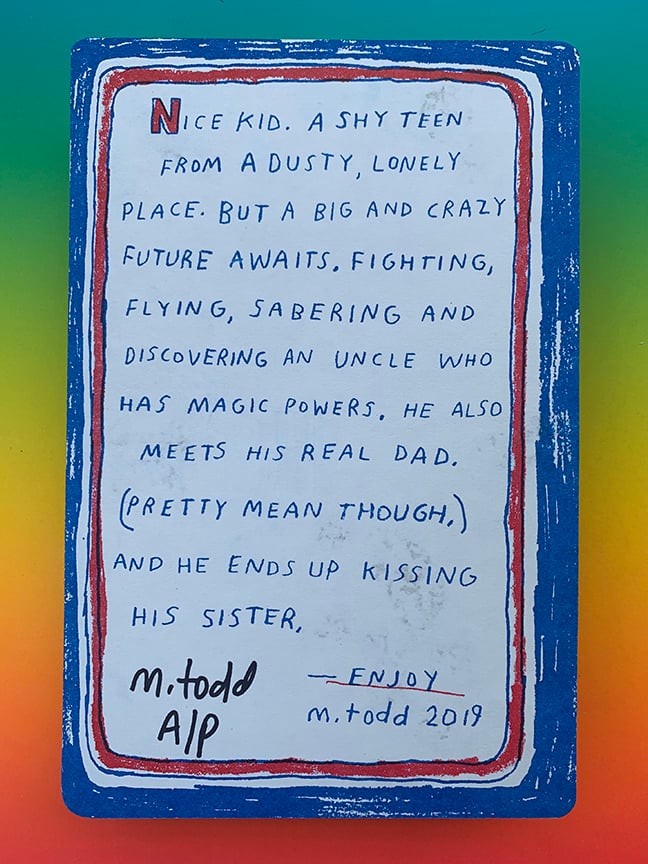 NICE KID. A SHY TEEN
FROM A DUSTY, LONELY
PLACE. BUT A BIG AND CRAZY
FUTURE AWAITS. FIGHTING,
FLYING, SABERING AND
DISCOVERING AN UNCLE WHO
HAS MAGIC POWERS. HE ALSO
MEETS HIS REAL DAD.
(PRETTY MEAN THOUGH.)
AND HE ENDS UP KISSING
HIS SISTER.
— ENJOY
m.todd 2019
m.todd
A/P